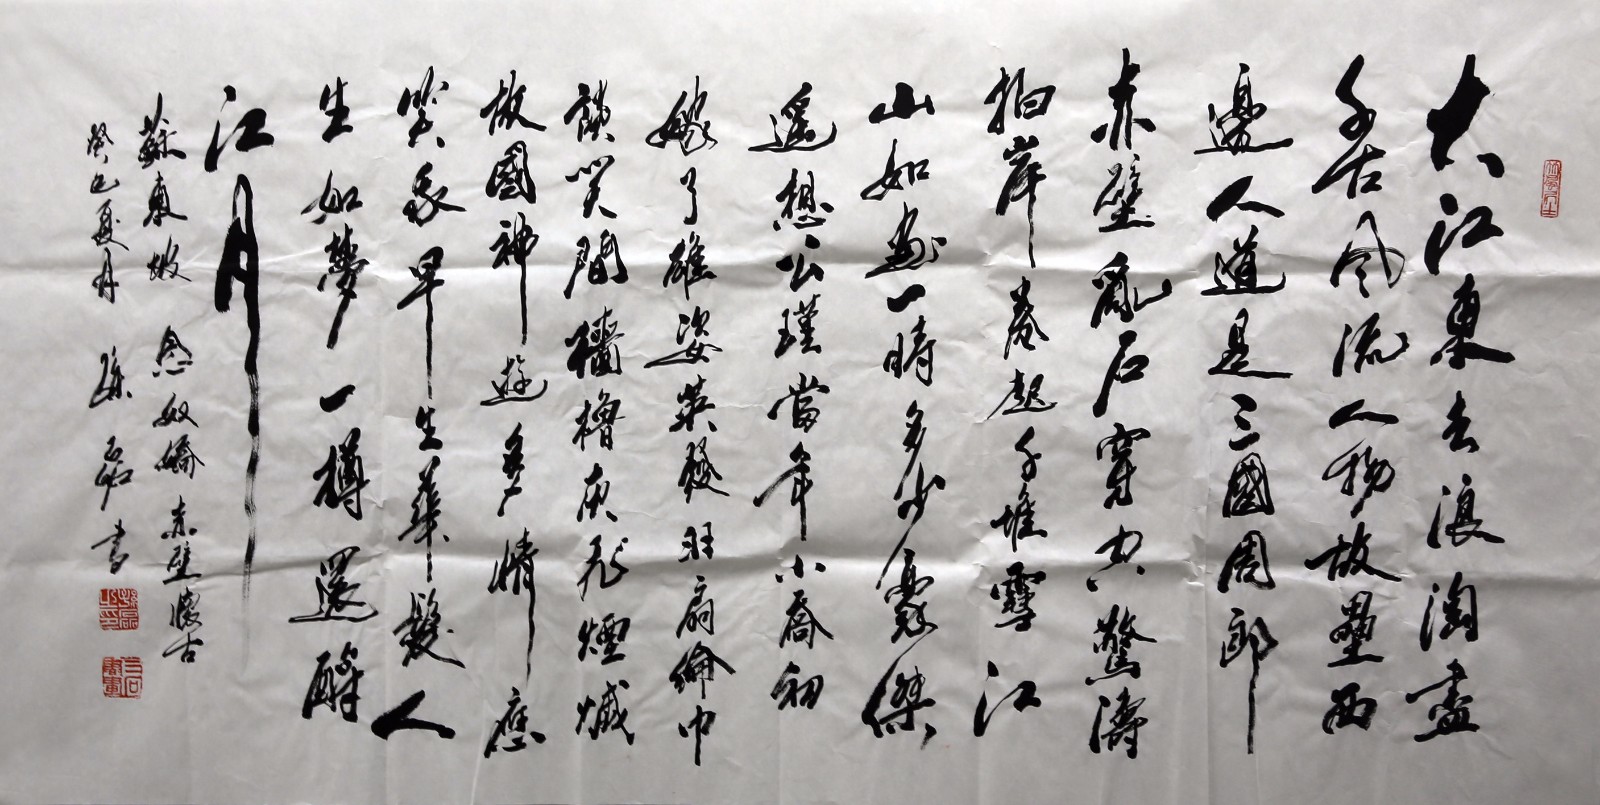 大江東去浪淘盡
千古風流人物故壘西
邊人道是三國周郎
赤壁亂石穿空驚濤
拍岸卷起千堆雪江
山如畫一時多少豪傑
遙想公瑾當年小喬初
嫁了雄姿英發羽扇綸巾
談笑間檣櫓灰飛煙滅
故國神遊多情應
笑我早生華髮人
生如夢一樽還酹
江月
蘇東坡 念奴嬌 赤壁懷古
癸巳夏月 孫磊書